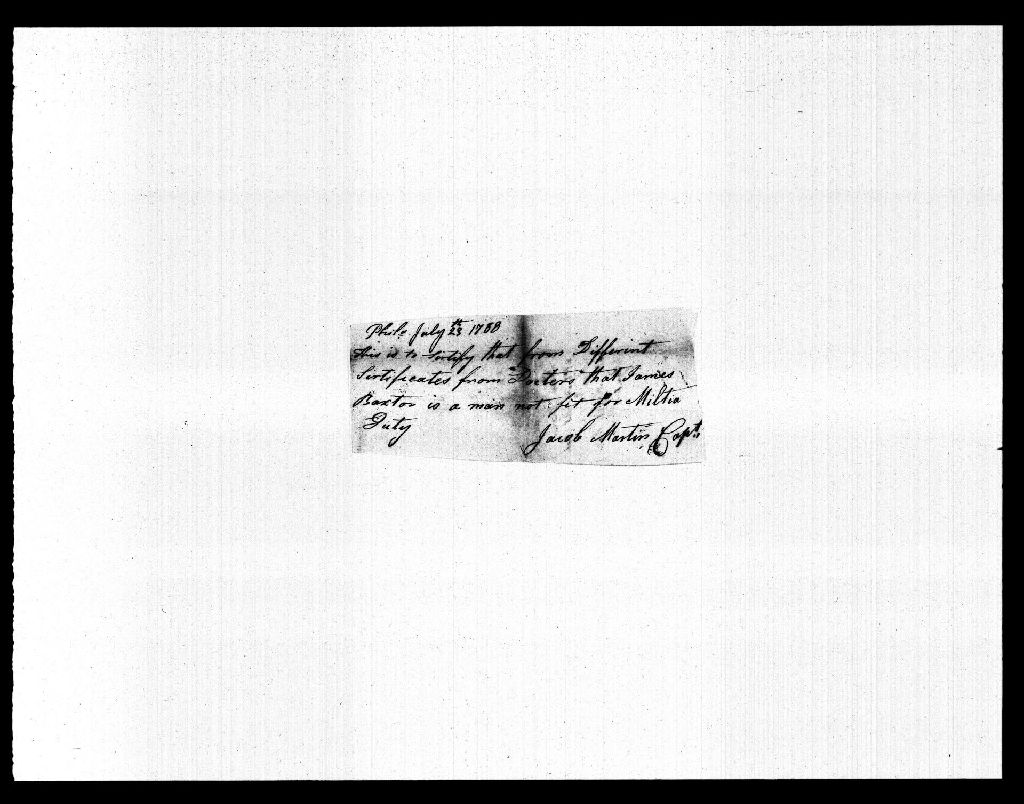 Phila July 23th 1788
this is to Sertify that from Different
Sertificates from Docters that James
Baxtor is a man not fit for Miltia
Duty
Jacob Martin, Capt.